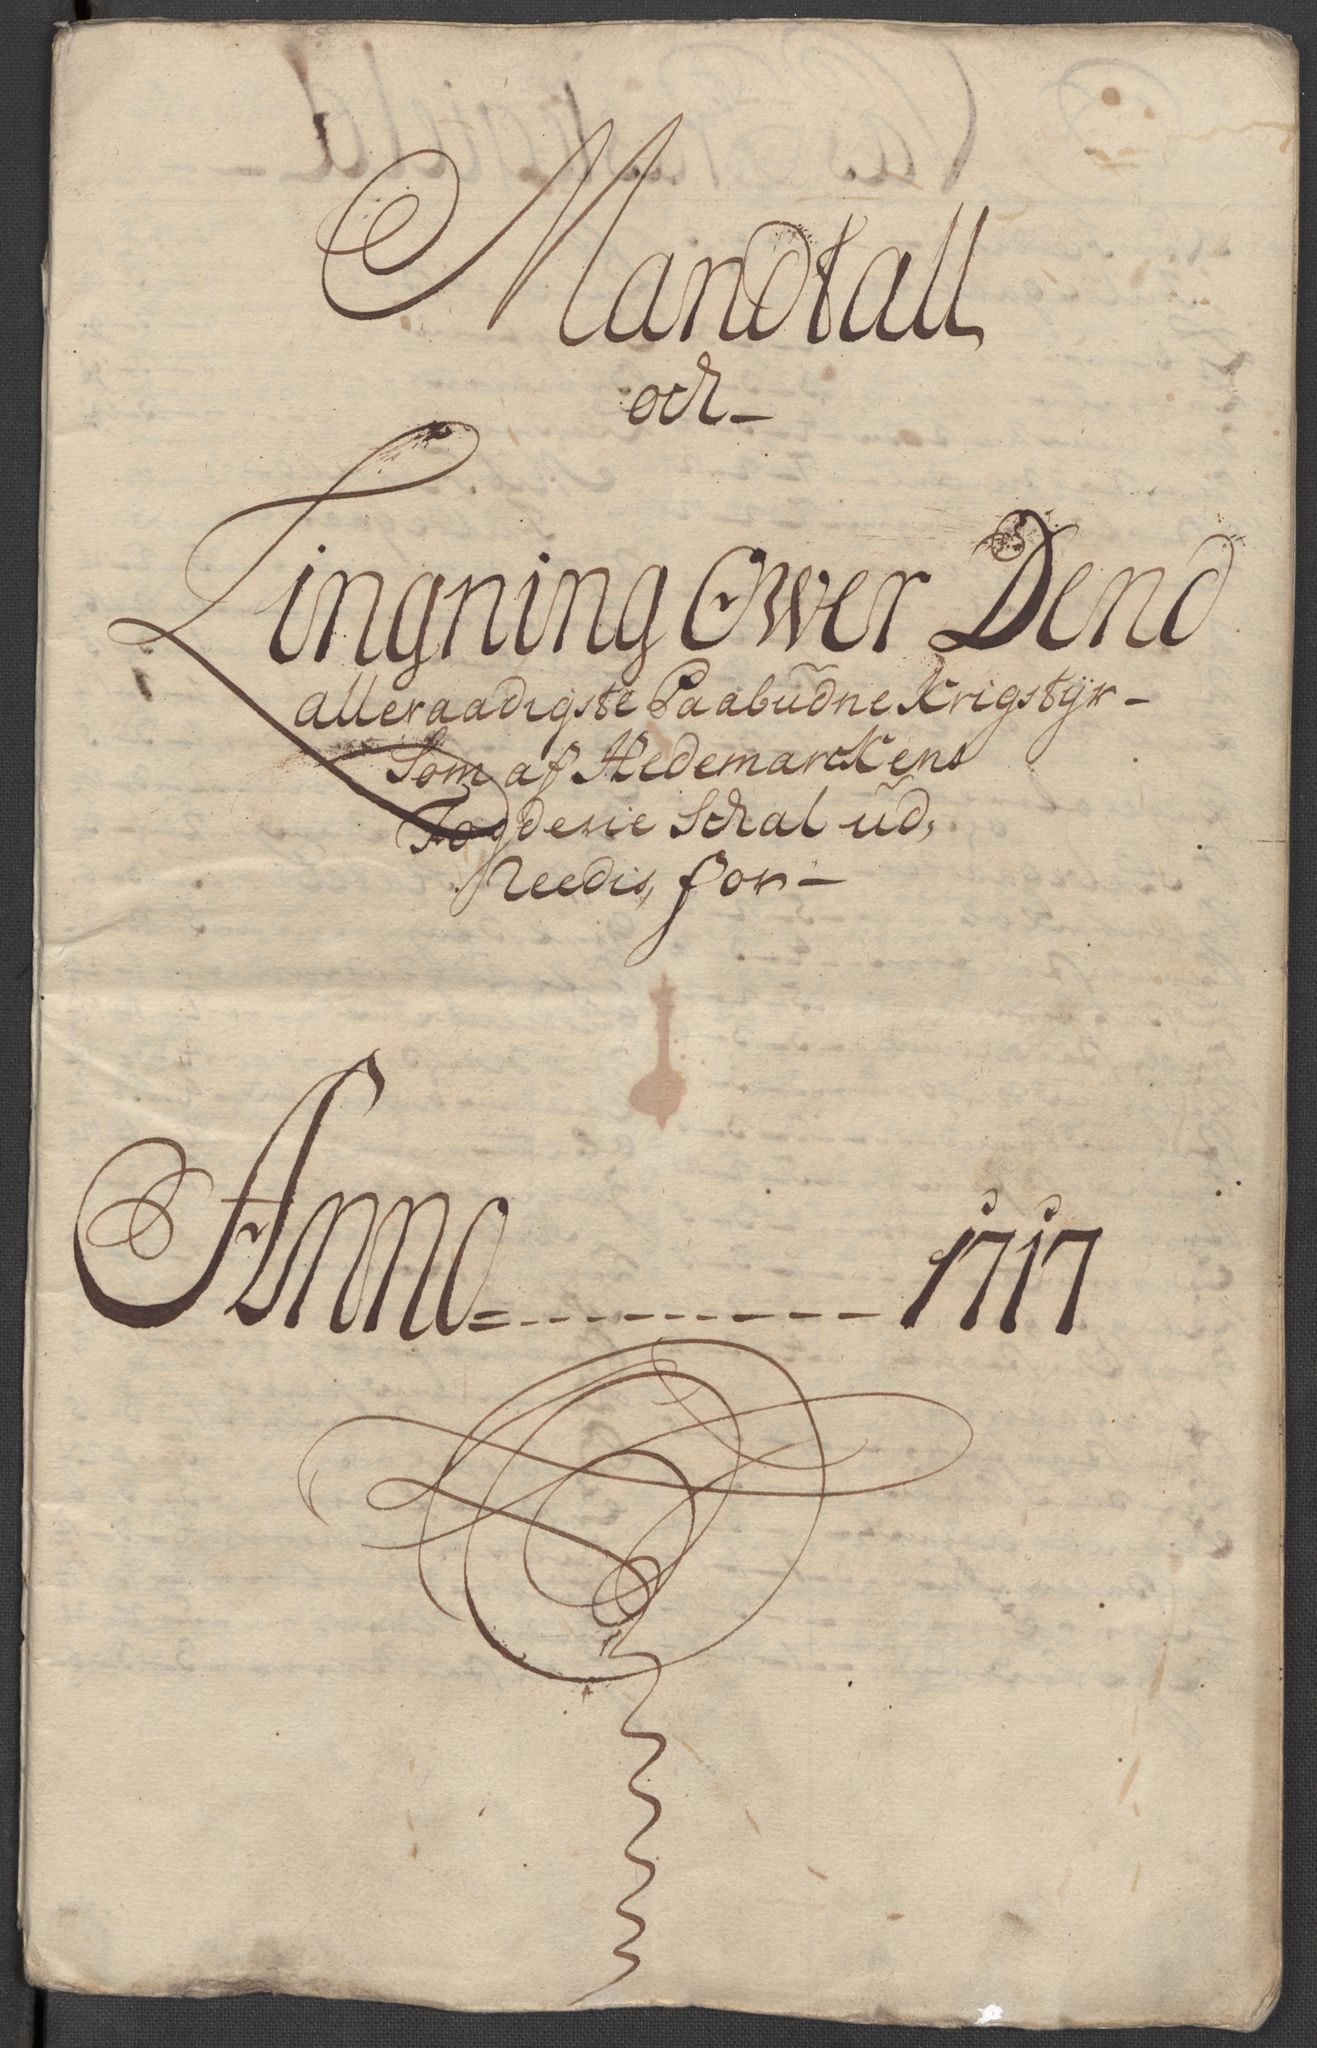 Mandtall
och
Lingning Ower Dend
alleraadigste Paabudne Krigstyr
Som af Hedemarckens
Fogderie Schal ud,
Reedis, for
Anno 1717